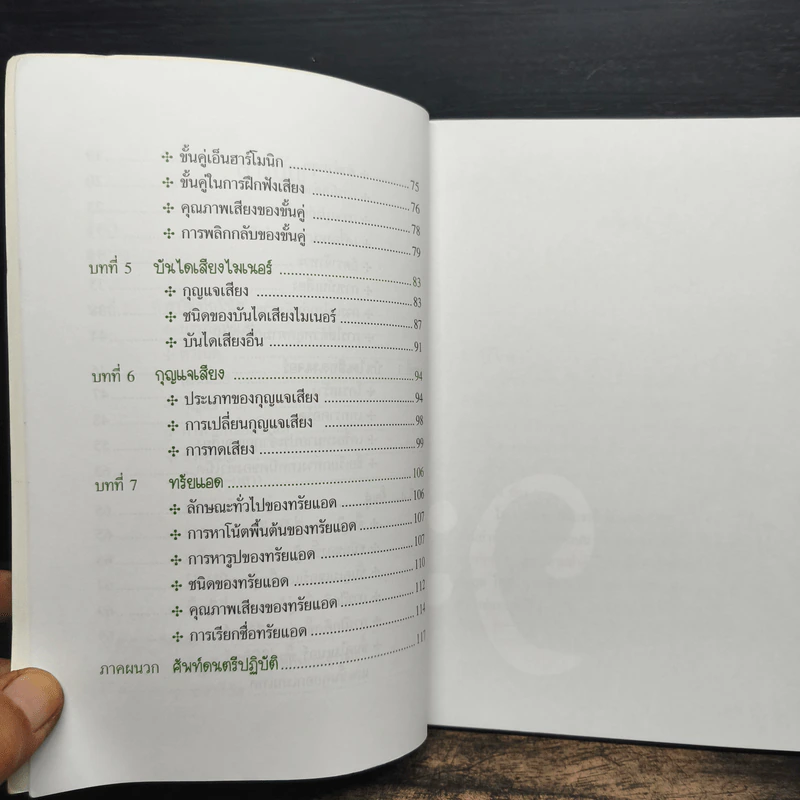 ✣ ขั้นคู่เอ็นฮาร์โมนิก ........ 75
✣ ขั้นคู่ในการฝึกฟังเสียง ........ 76
✣ คุณภาพเสียงของขั้นคู่ ........ 78
✣ การพลิกกลับของขั้นคู่ ........ 79
บทที่ 5 บันไดเสียงไมเนอร์ ........ 83
✣ กุญแจเสียง ........ 83
✣ ชนิดของบันไดเสียงไมเนอร์ ........ 87
✣ บันไดเสียงอื่น ........ 91
บทที่ 6 กุญแจเสียง ........ 94
✣ ประเภทของกุญแจเสียง ........ 94
✣ การเปลี่ยนกุญแจเสียง ........ 98
✣ การทดเสียง ........ 99
บทที่ 7 ทรัยแอด ........ 106
✣ ลักษณะทั่วไปของทรัยแอด ........ 106
✣ การหาโน้ตพื้นต้นของทรัยแอด ........ 107
✣ การหารูปของทรัยแอด ........ 107
✣ ชนิดของทรัยแอด ........ 110
✣ คุณภาพเสียงของทรัยแอด ........ 112
✣ การเรียกชื่อทรัยแอด ........ 114
ภาคผนวก ศัพท์ดนตรีปฏิบัติ ........ 117